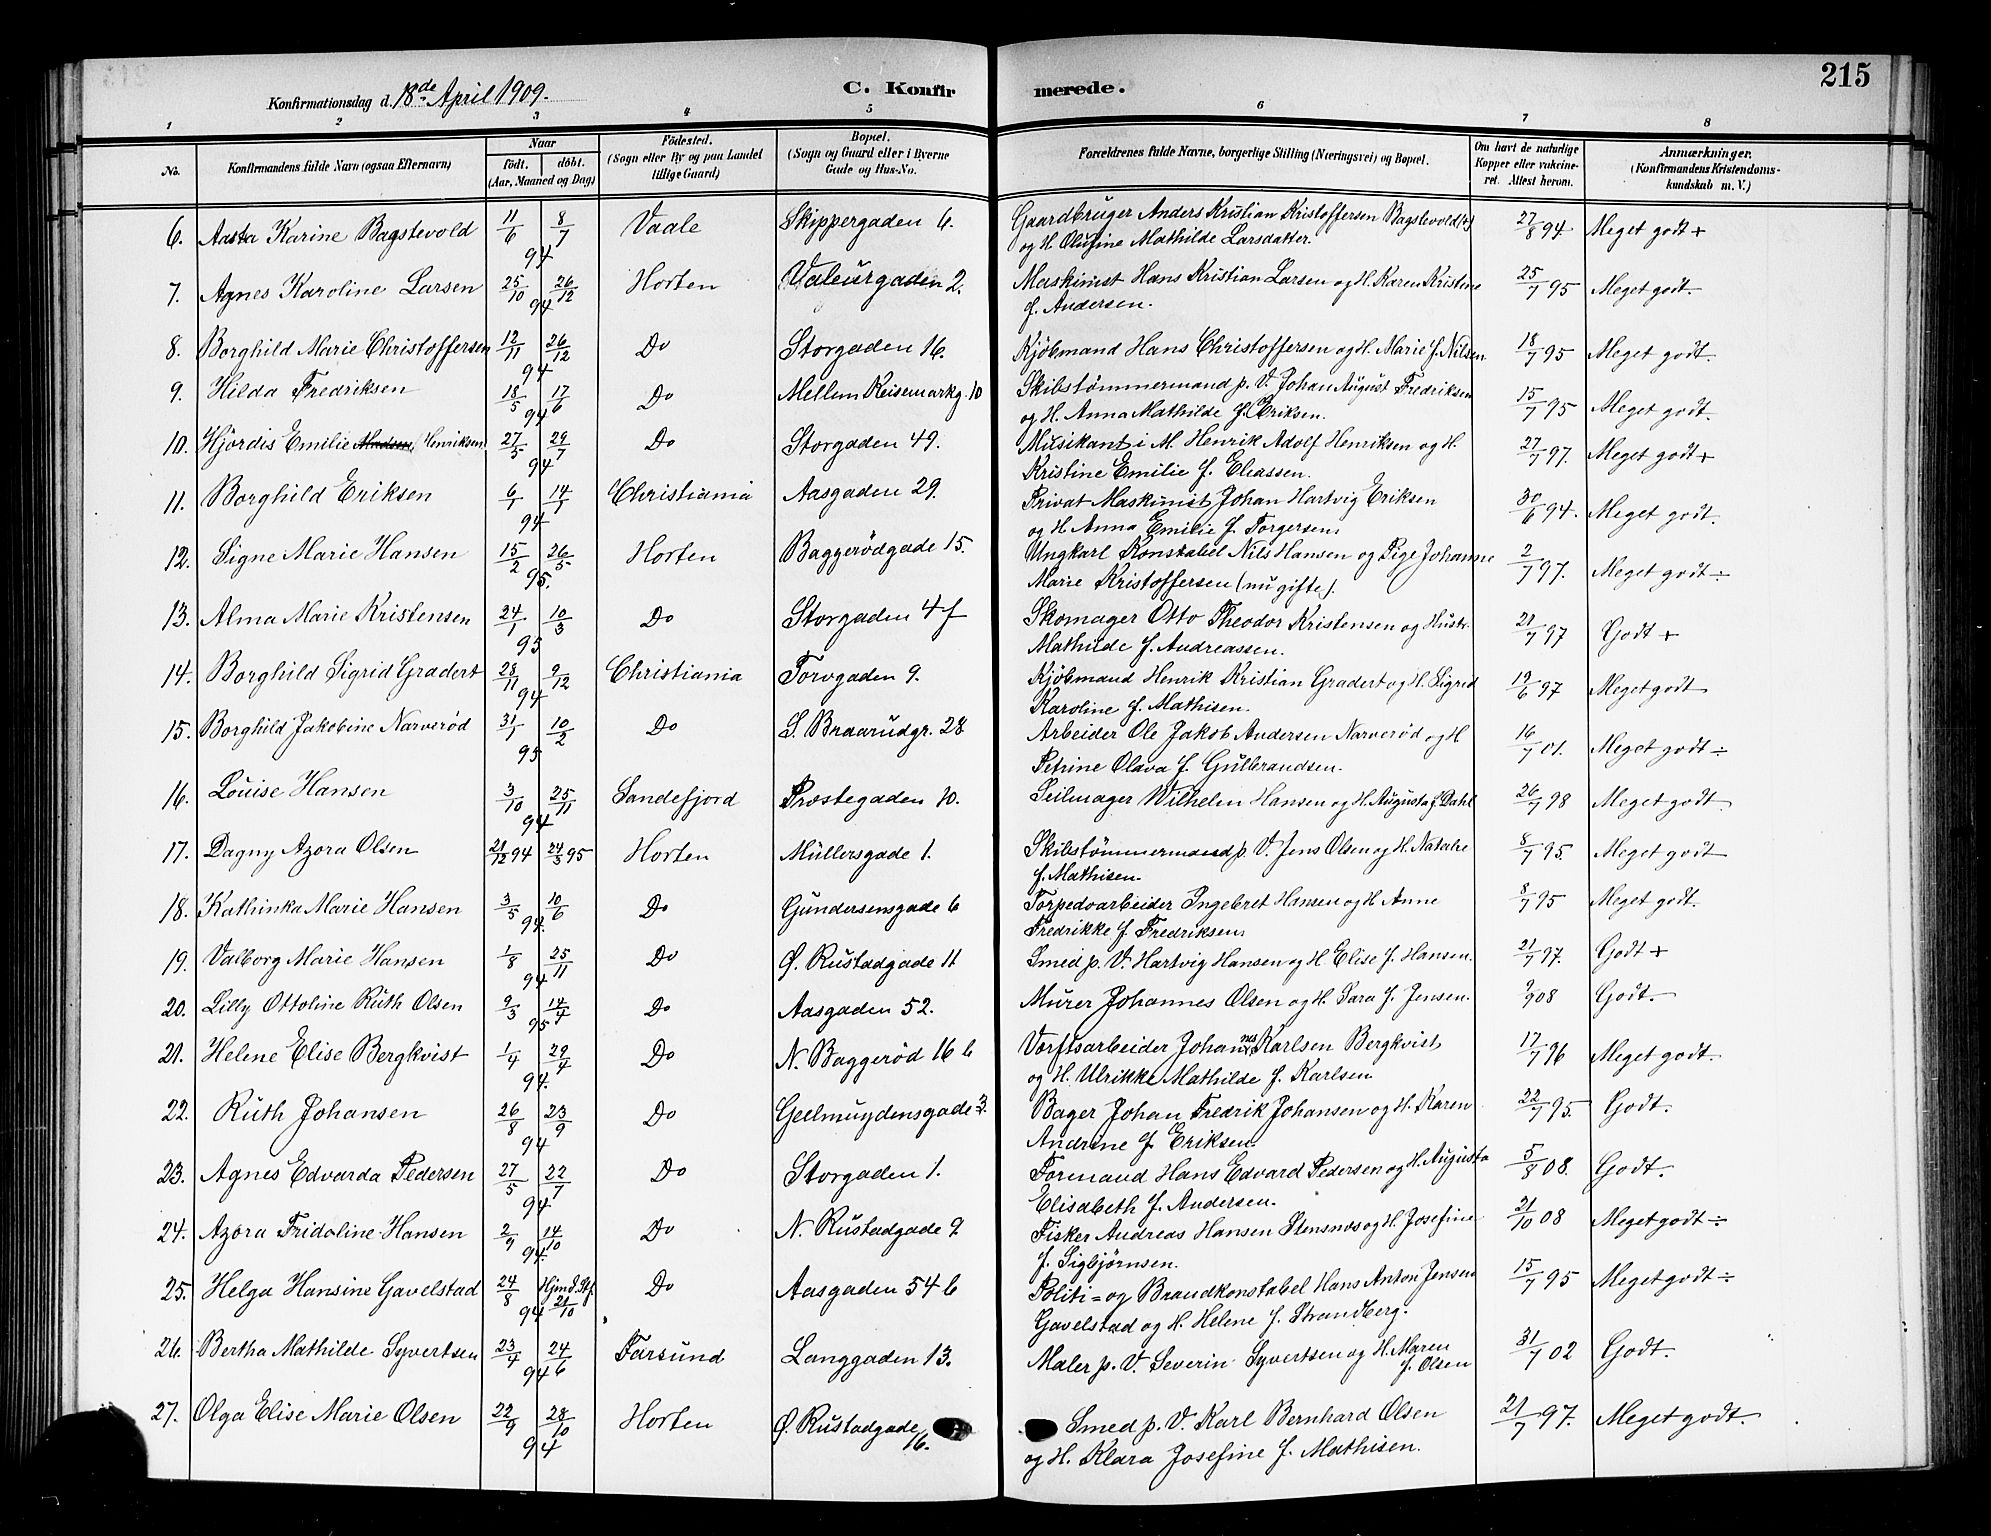 215
Konfirmationsdag d. 18de April 1909.
C. Konfirmerede.
1 2 3 4 5 6 7 8
No.
Konfirmandens fulde Navn (ogsaa Efternavn)
Naar
födt. döbt.
(Aar, Maaned og Dag)
Födested.
(Sogn eller By og paa Landet
tillige Gaard)
Bopæl.
(Sogn og Gaard eller i Byerne
Gade og Hus-No.
Forældrenes fulde Navne, borgerlige Stilling (Næringsvei) og Bopæl.
Om havt de naturlige
Kopper eller vakcine-
ret. Attest herom.
Anmærkninger.
(Konfirmandens Kristendoms-
kundskab m. V.)
6. Aasta Karine Bagstevold 11/6 8/7 94 Vaale Skippergaden 6. Gaardbruger Anders Kristian Kristoffersen Bagstevold (+)
og H. Olufine Mathilde Larsdatter. 27/8 94. Meget godt +
7. Agnes Karoline Larsen 25/10 26/12 94 Horten Valeurgaden 2. Maskinist Hans Kristian Larsen og H. Karen Kristine
f. Andersen. 25/7 95 Meget godt.
8. Borghild Marie Christoffersen 12/11 26/12 94 Do Storgaden 16. Kjöbmand Hans Christoffersen og H. Marie f. Nilsen 18/7 95 Meget godt.
9. Hilda Fredriksen 18/5 17/6 94 Do Mellem Keisemarkg. 10 Skibstömmermand p. V. Johan August Fredriksen
og H. Anna Mathilde f. Eriksen. 15/7 95 Meget godt.
10. Hjördis Emilie Madsen Henriksen 27/5 29/7 94 Do Storgaden 49. Musikant i M. Henrik Adolf Henriksen og H.
Kristine Emilie f. Eliassen. 27/7 97. Meget godt +
11. Borghild Eriksen 6/1 14/1 94 Christiania Aasgaden 29. Privat Maskinist Johan Hartvig Eriksen
og H. Anna Emilie f. Torgersen. 30/6 94. Meget godt.
12. Signe Marie Hansen 15/2 26/5 95. Horten Baggerödgade 15. Ungkarl Konstabel Nils Hansen og Pige Johanne
Marie Kristoffersen (nu gifte). 2/7 97. Meget godt ÷
13. Alma Marie Kristensen 24/1 10/3 95 Do Storgaden 4 f Skomager Otto Theodor Kristensen og Hustr.
Mathilde f. Andreassen. 21/7 97 Godt +
14. Borghild Sigrid Gradert 28/11 9/12 94 Christiania Torvgaden 9. Kjöbmand Henrik Kristian Gradert og H. Sigrid
Karoline f. Mathisen. 19/6 97 Meget godt
15. Borghild Jakobine Narveröd 31/1 10/2 95 Do S. Braarudgr. 28 Arbeider Ole Jakob Andersen Narveröd og H
Petrine Olava f. Gulbrandsen. 16/7 01. Meget godt ÷
16. Louise Hansen 3/10 25/11 94 Sandefjord Præstegaden 10. Seilmager Wilhelm Hansen og H. Augusta f. Dahl 26/7 98 Meget godt
17. Dagny Azora Olsen 21/12 94 24/3 95 Horten Müllersgade 1. Skibstömmermand p. V. Jens Olsen og H. Natalie
f. Mathisen. 8/7 95. Meget godt
18. Kathinka Marie Hansen 3/5 10/6 94. Do Gundersensgade 6 Torpedoarbeider Ingebret Hansen og H. Anne
Fredrikke f. Fredriksen. 8/7 95 Meget godt.
19. Valborg Marie Hansen 1/8 25/11 94 Do Ø. Rustadgade 11 Smed p. V. Hartvig Hansen og H. Elise f. Hansen. 21/7 97. Godt +
20. Lilly Ottoline Ruth Olsen 9/3 14/4 95 Do Aasgaden 52. Murer Johannes Olsen og H. Sara f. Jensen. 9/7 08 Godt.
21. Helene Elise Bergkvist 1/4 29/4 94. Do N. Baggeröd 16 b Værftsarbeider Johannes Karlsen Bergkvist
og H. Ulrikke Mathilde f. Karlsen 17/7 96 Meget godt.
22. Ruth Johansen 26/8 23/9 94 Do Geelmuydensgade 3. Bager Johan Fredrik Johansen og H. Karen
Andrine f. Eriksen. 22/7 95. Godt.
23. Agnes Edvarda Pedersen 27/5 22/7 94 Do Storgaden 1. Formand Hans Edvard Pedersen og H. Augusta
Elisabeth f. Andersen. 5/8 08. Godt.
24. Azora Fridoline Hansen 2/9 14/10 94. Do N. Rustadgade 9 Fisker Andreas Hansen Stensnæs og H. Josefine
f. Sigbjørnsen. 21/10 08 Meget godt ÷
25. Helga Hansine Gavelstad 24/8 Hjmd. Stf. 21/10 94 Do Aasgaden 54 b Politi= og Brandkonstabel Hans Anton Jensen
Gavelstad og H. Helene f. Strandberg. 15/7 95 Meget godt ÷
26. Bertha Mathilde Syvertsen 23/4 24/6 94 Farsund Langgaden 13. Maler p. V. Severin Syvertsen og H. Maren
f. Olsen 31/7 02 Godt.
27. Olga Elise Marie Olsen 22/9 28/10 94 Horten Ø. Rustadgade 16. Smed p. V. Karl Bernhard Olsen
og H. Klara Josefine f. Mathisen. 21/7 97. Meget godt.